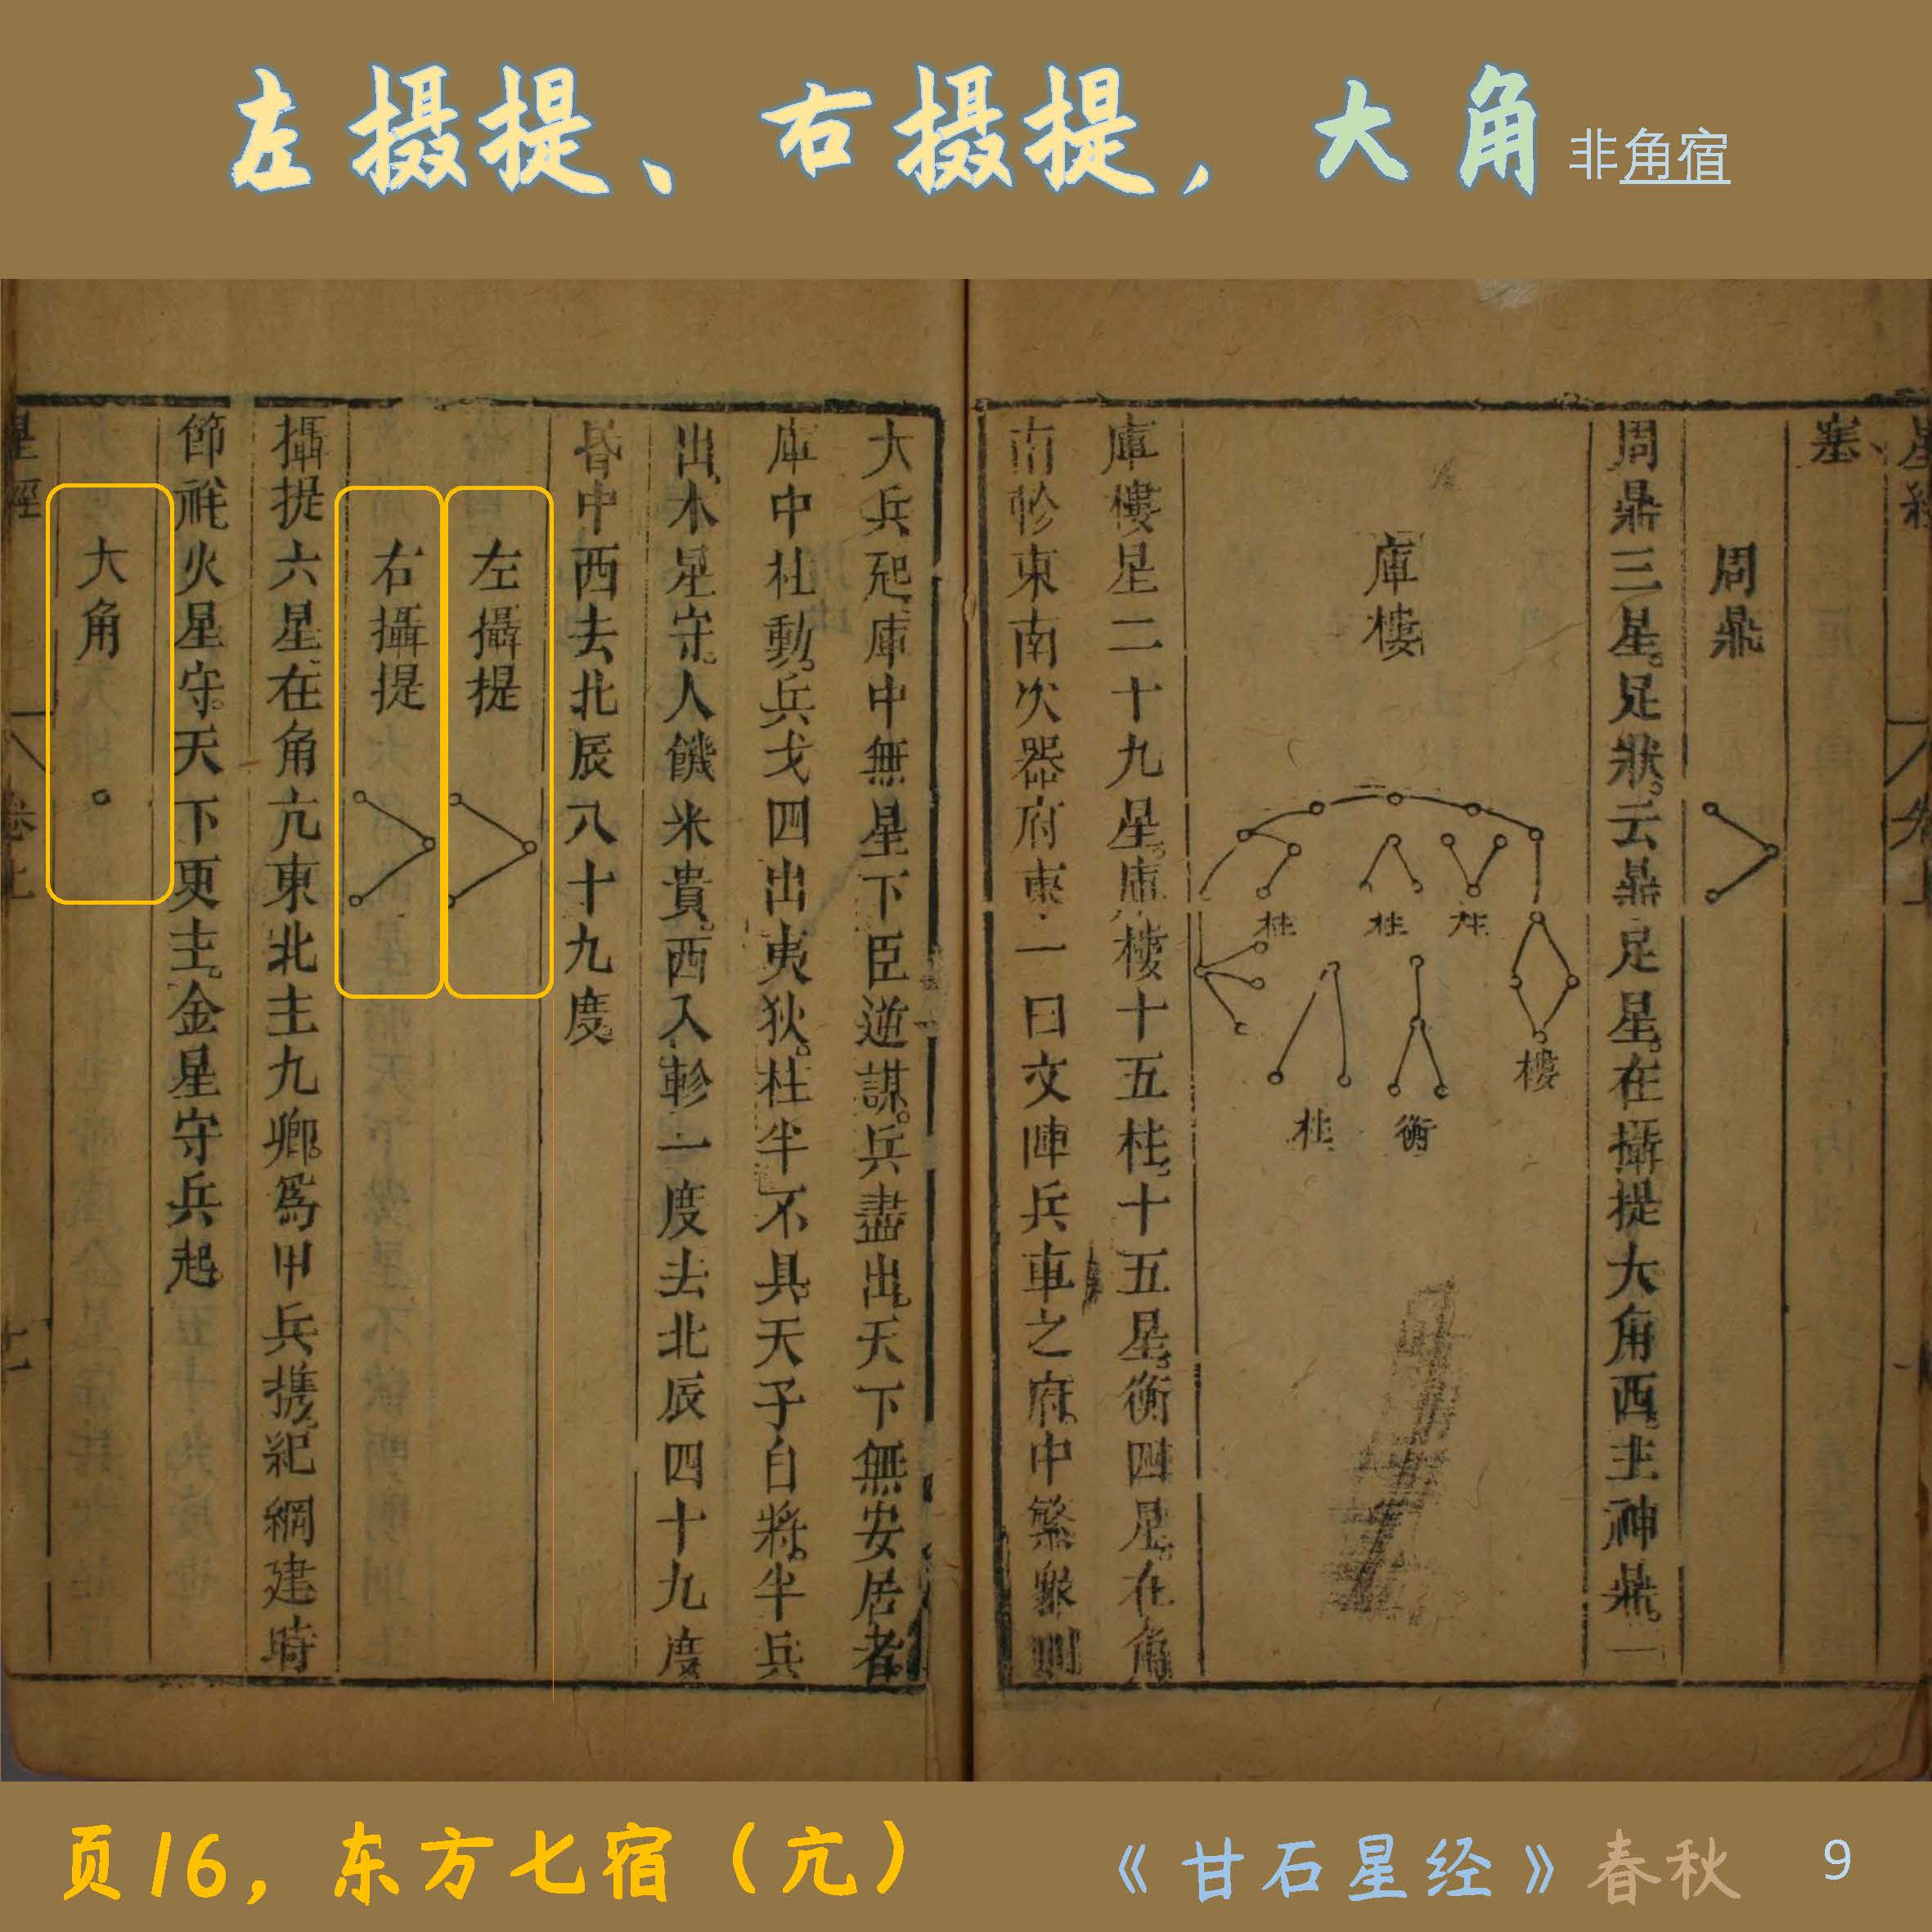 左摄提、右摄提，大角非角宿
塞
周鼎
周鼎三星。足狀。云鼎足星。在攝提大角西。主神鼎。一
庫樓
柱
柱
柱
樓
柱
衡
庫樓星二十九星。庫樓十五柱。十五星。衡四星。在角
南軫東南次器府東一曰文陣兵車之府。中繁衆則
大兵起。庫中無星下臣逆謀。兵盡出。天下無安居者
庫中柱動。兵戈四出夷狄。柱半不具。天子自將。半兵
出。木星守。人饑米貴。西入軫一度去北辰四十九度
昏中西去北辰八十九度
左攝提
右攝提
攝提六星在角亢東北主九卿。為甲兵携。紀綱建時
節祅火星守。天下更主。金星守兵起
大角
星經
卷上
页16，东方七宿（亢）
《甘石星经》春秋
9